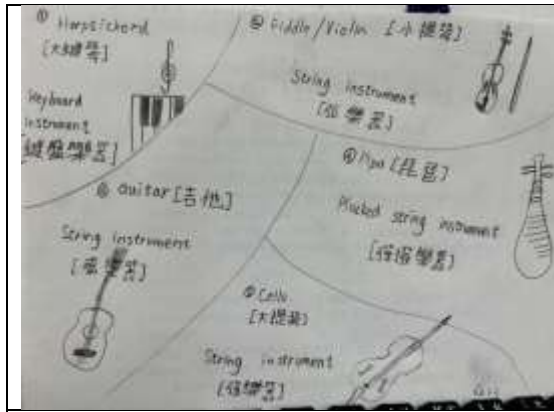 ① Harpsichord
[大鍵琴]
Keyboard
instrument
[鍵盤樂器]
Fiddle/Violin [小提琴]
String instrument
[弦樂器]
④ Pipa [琵琶]
Plucked string instrument
Guitar [吉他]
String instrument
[弦樂器]
Cello
[大提琴]
String instrument
[弦樂器]